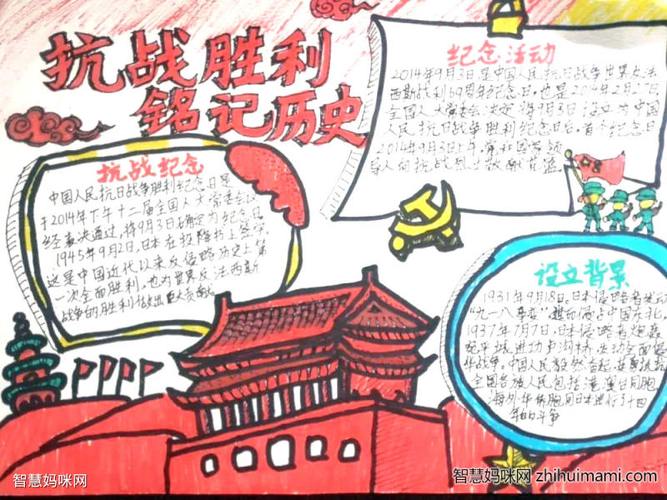 抗战胜利
铭记历史
纪念活动
2014年9月3日是中国人民抗日战争暨世界反法
西斯战利69周年纪念日,也是2014年2月27日
全国人大常委会决定将9月3日设立为中国
人民抗日战争胜利纪念日后,首个纪念日
2014年9月3日上午,党和国家领
导人向抗战烈士敬献花篮
抗战纪念
中国人民抗日战争胜利纪念日是
于2014年下午十二届全国人大常委会
经表决通过,将9月3日确定为纪念日
1945年9月2日,日本在投降书上签字
这是中国近代以来反侵略历史上第
一次全面胜利,也为世界反法西斯
战争的胜利做出巨大贡献
设立背景
1931年9月18日,日本侵略者发动
"九一八事变",占中国东北。
1937年7月7日,日本侵略者炮轰
宛平城进攻卢沟桥,发动全面侵
华战争。中国人民毅然奋起,
全国各族人民包括港澳台同胞
海外华侨胞同日本进行了十四
年的斗争
智慧妈咪网
智慧妈咪网 zhihuimami.com